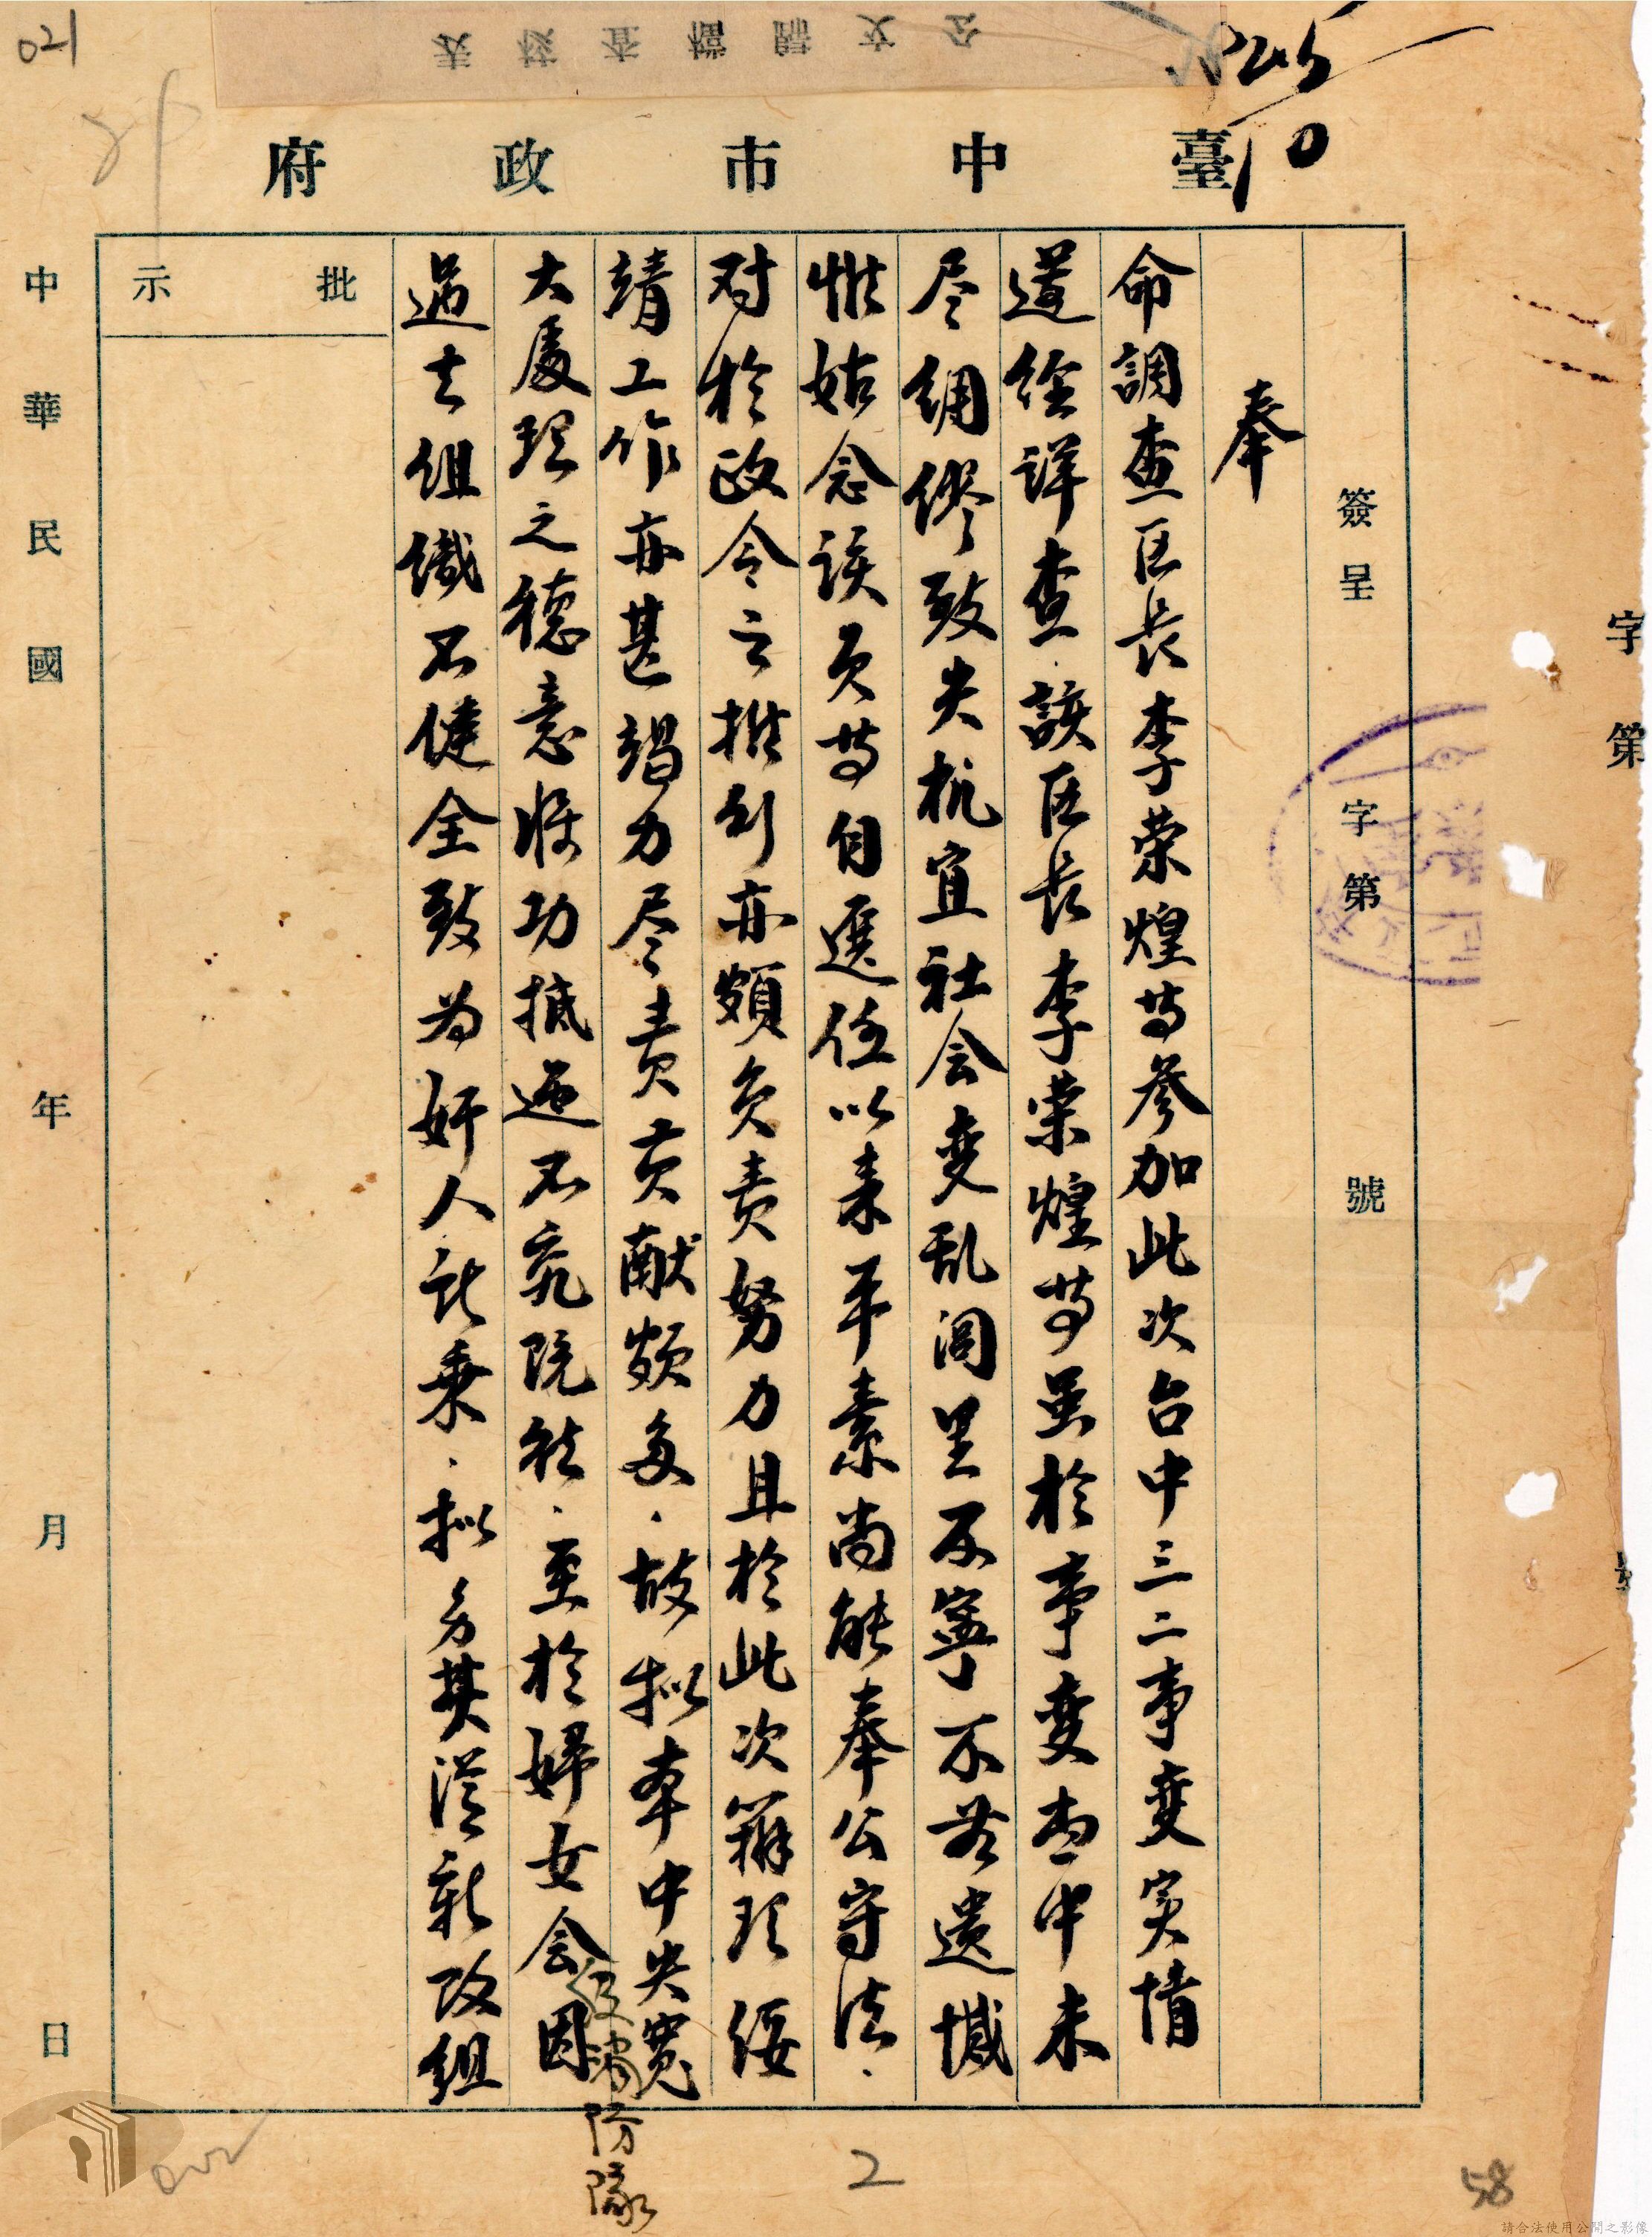 021
表核查檔歸文公
臺中市政府
字第
簽呈 字第 號
奉
命調查区長李荣煌等參加此次台中三二事变实情
遵経詳查該区長李荣煌等虽於事变当中未
尽綢繆致失机宜社会变乱閭里不寧不无遺憾
惟姑念該員等自選任以来平素尚能奉公守法
对於政令之推行亦頗負責努力且於此次辦理綏
靖工作亦甚竭力尽責貢献頗多故拟本中央寬
大處理之德意将功抵過不究既往至於婦女会
消防隊
因
過去組織不健全致为奸人所乘拟另其従新改組
批示
中華民國 年 月 日
2
58
請合法使用公開之影像